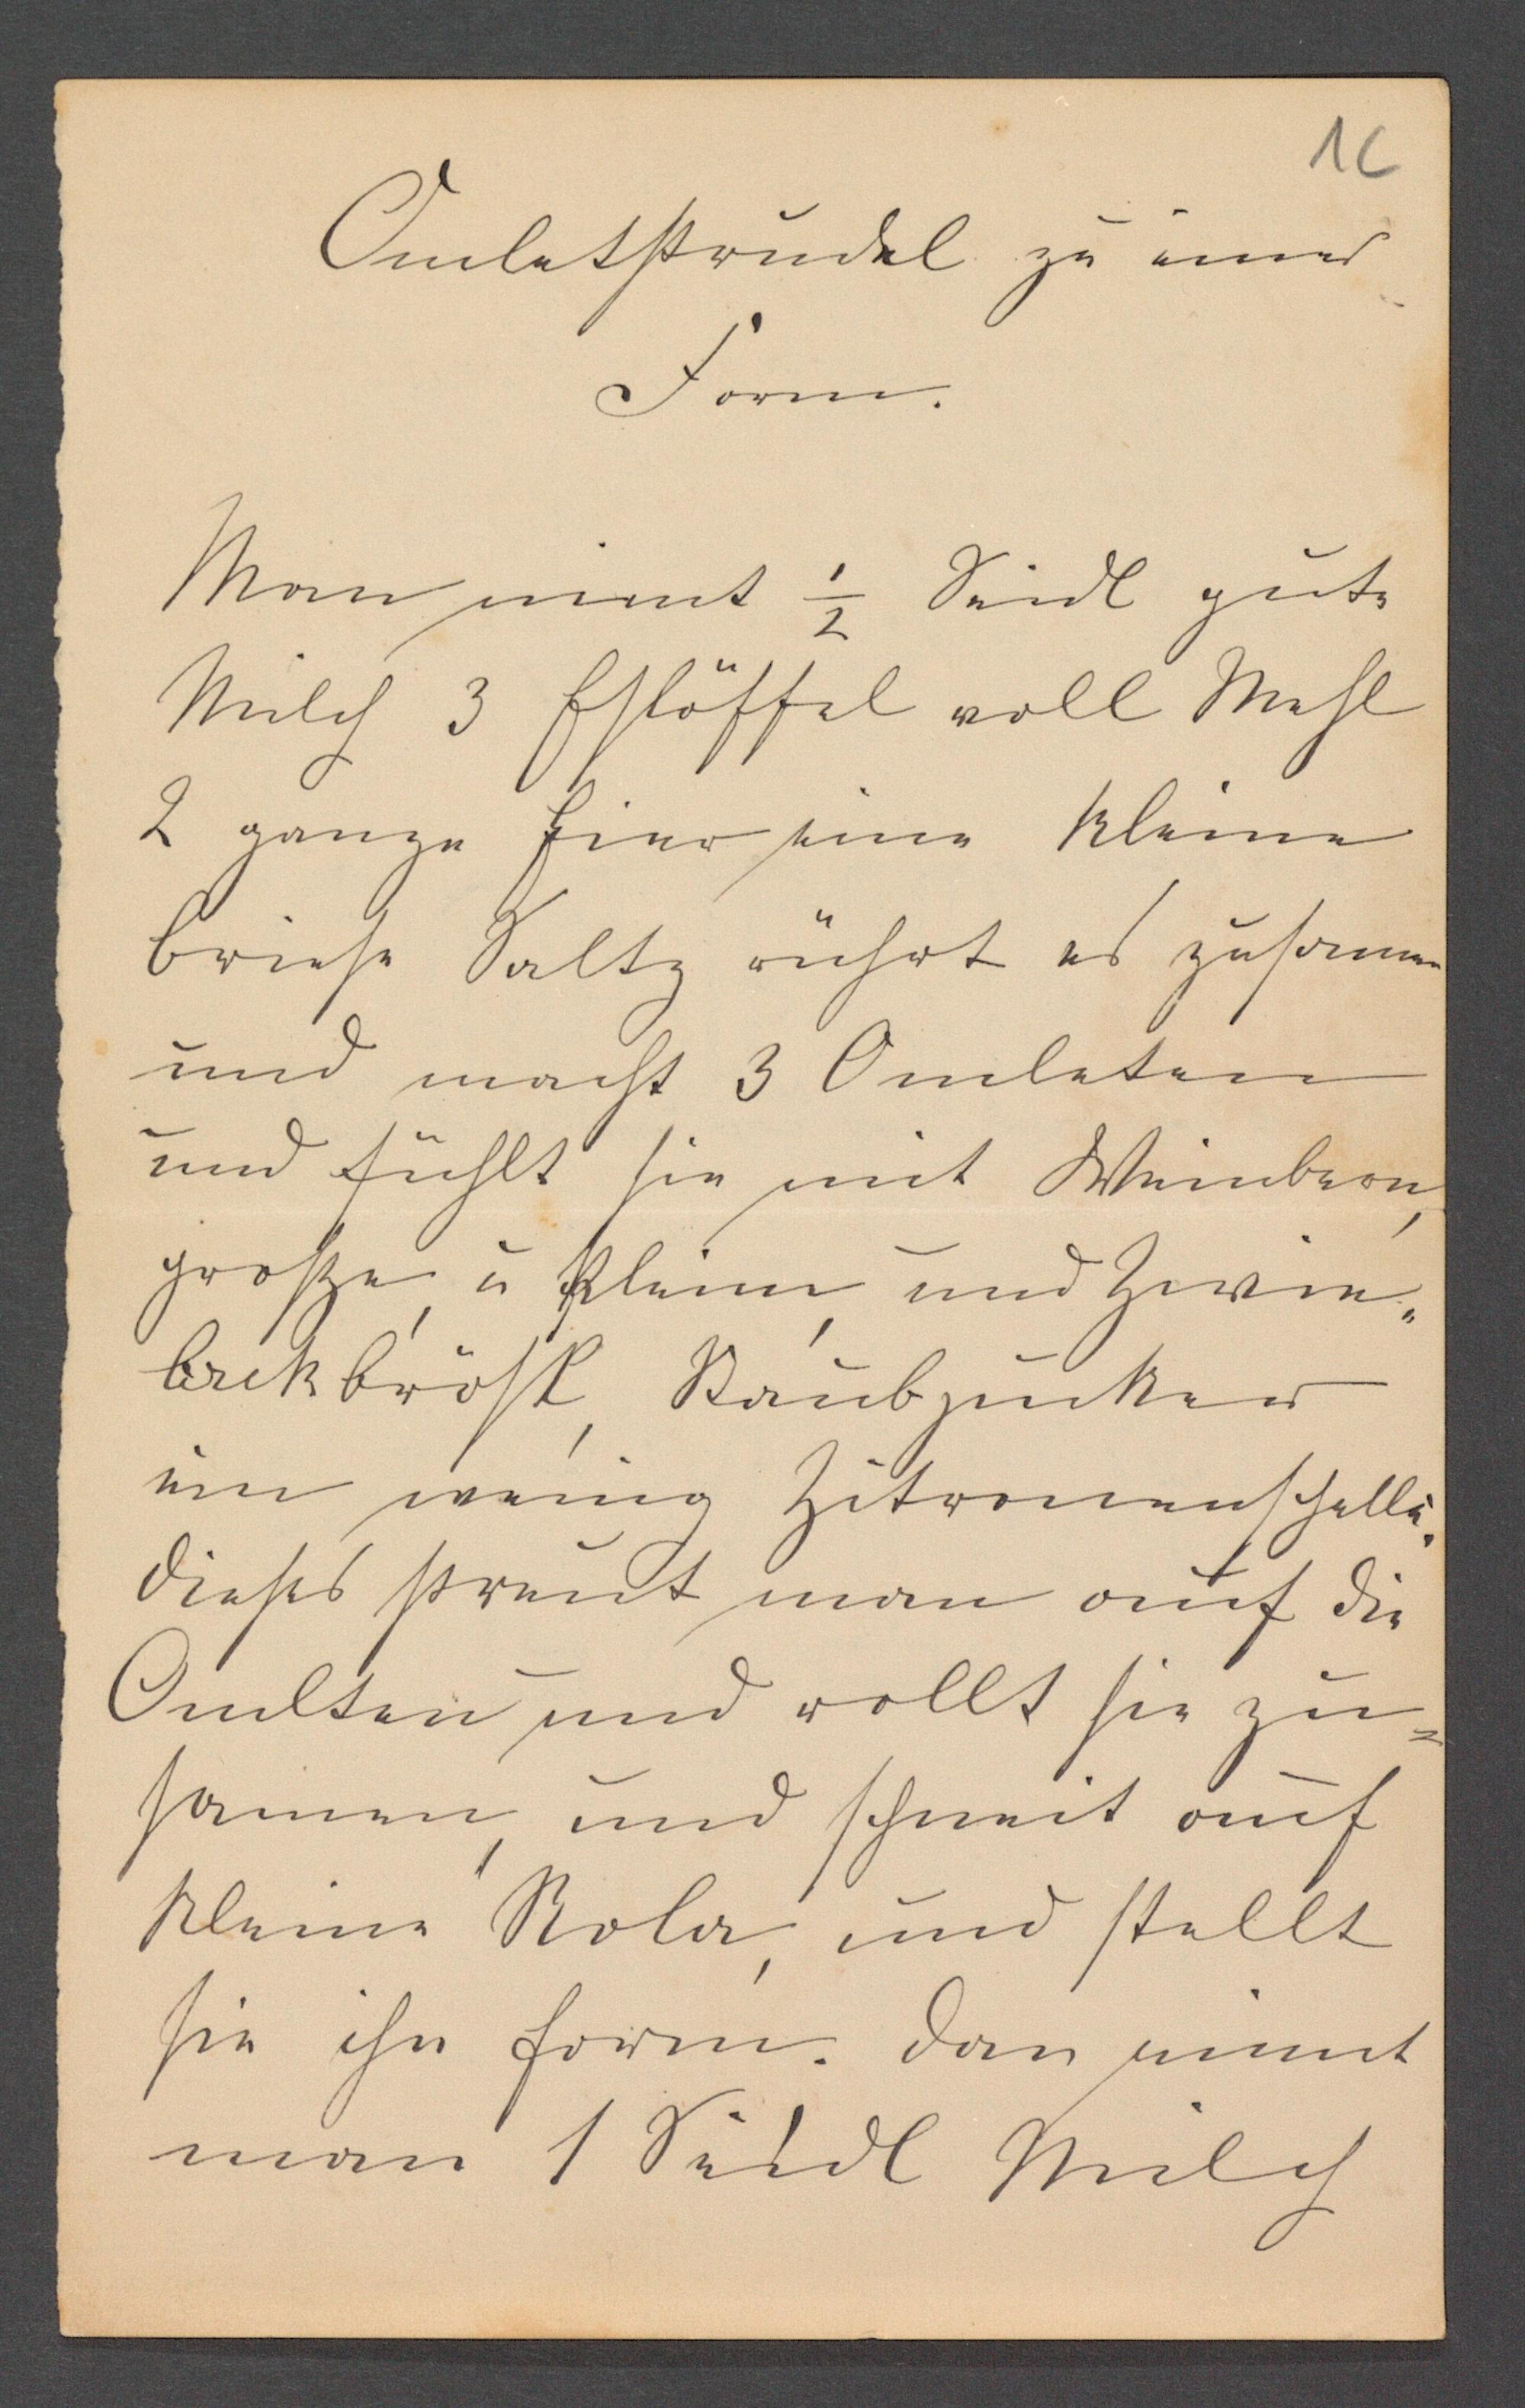 1C
Omletstrudel zu einer
Form.
Man nimt ½ Seidl gute
Milch 3 Eslöffel voll Mehl
2 ganze Eier eine kleine
briese Saltz rührt es zusamen
und macht 3 Omleten
und fühlt sie mit Weinbern,
große, u kleine, und Zwie„
backbrösl, Staubzucker
ein wenig Zitronenschelle.
dieses streut man auf die
Omlten und rollt sie zu=
samen, und schneit auf
kleine Rola, und stellt
sie ihn form. dan nimt
man 1 Seidl Milch